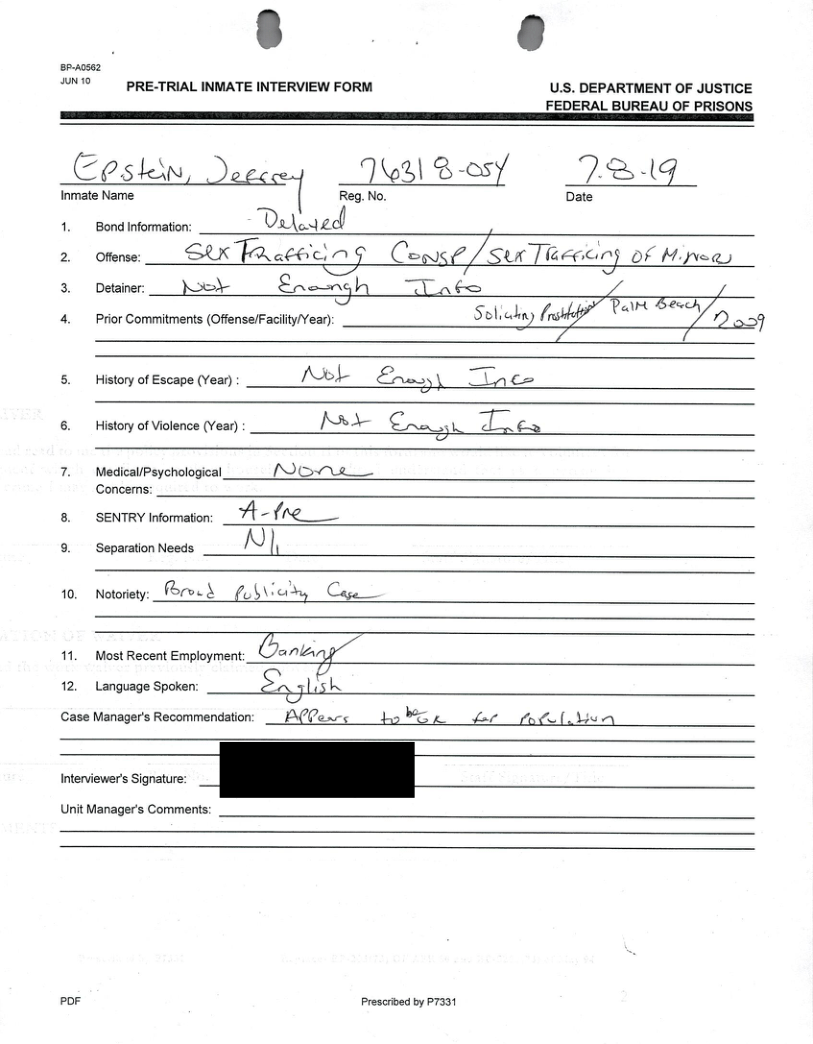 BP-A0562
JUN 10 PRE-TRIAL INMATE INTERVIEW FORM U.S. DEPARTMENT OF JUSTICE
FEDERAL BUREAU OF PRISONS
Epstein, Jeffrey 76318-054 7.8.19
Inmate Name Reg. No. Date
1. Bond Information: - Delayed
2. Offense: Sex Trafficing Consp/Sex Trafficing of Minors
3. Detainer: Not Enoungh Info
4. Prior Commitments (Offense/Facility/Year): Soliciting Prostitution/Palm Beach/2009
5. History of Escape (Year) : Not Enough Info
6. History of Violence (Year) : Not Enough Info
7. Medical/Psychological None
Concerns:
8. SENTRY Information: A-Pre
9. Separation Needs
10. Notoriety: Broad Publicity Case
11. Most Recent Employment: Banking
12. Language Spoken: English
Case Manager's Recommendation: Appears to be ok for Population
Interviewer's Signature:
Unit Manager's Comments:
PDF Prescribed by P7331